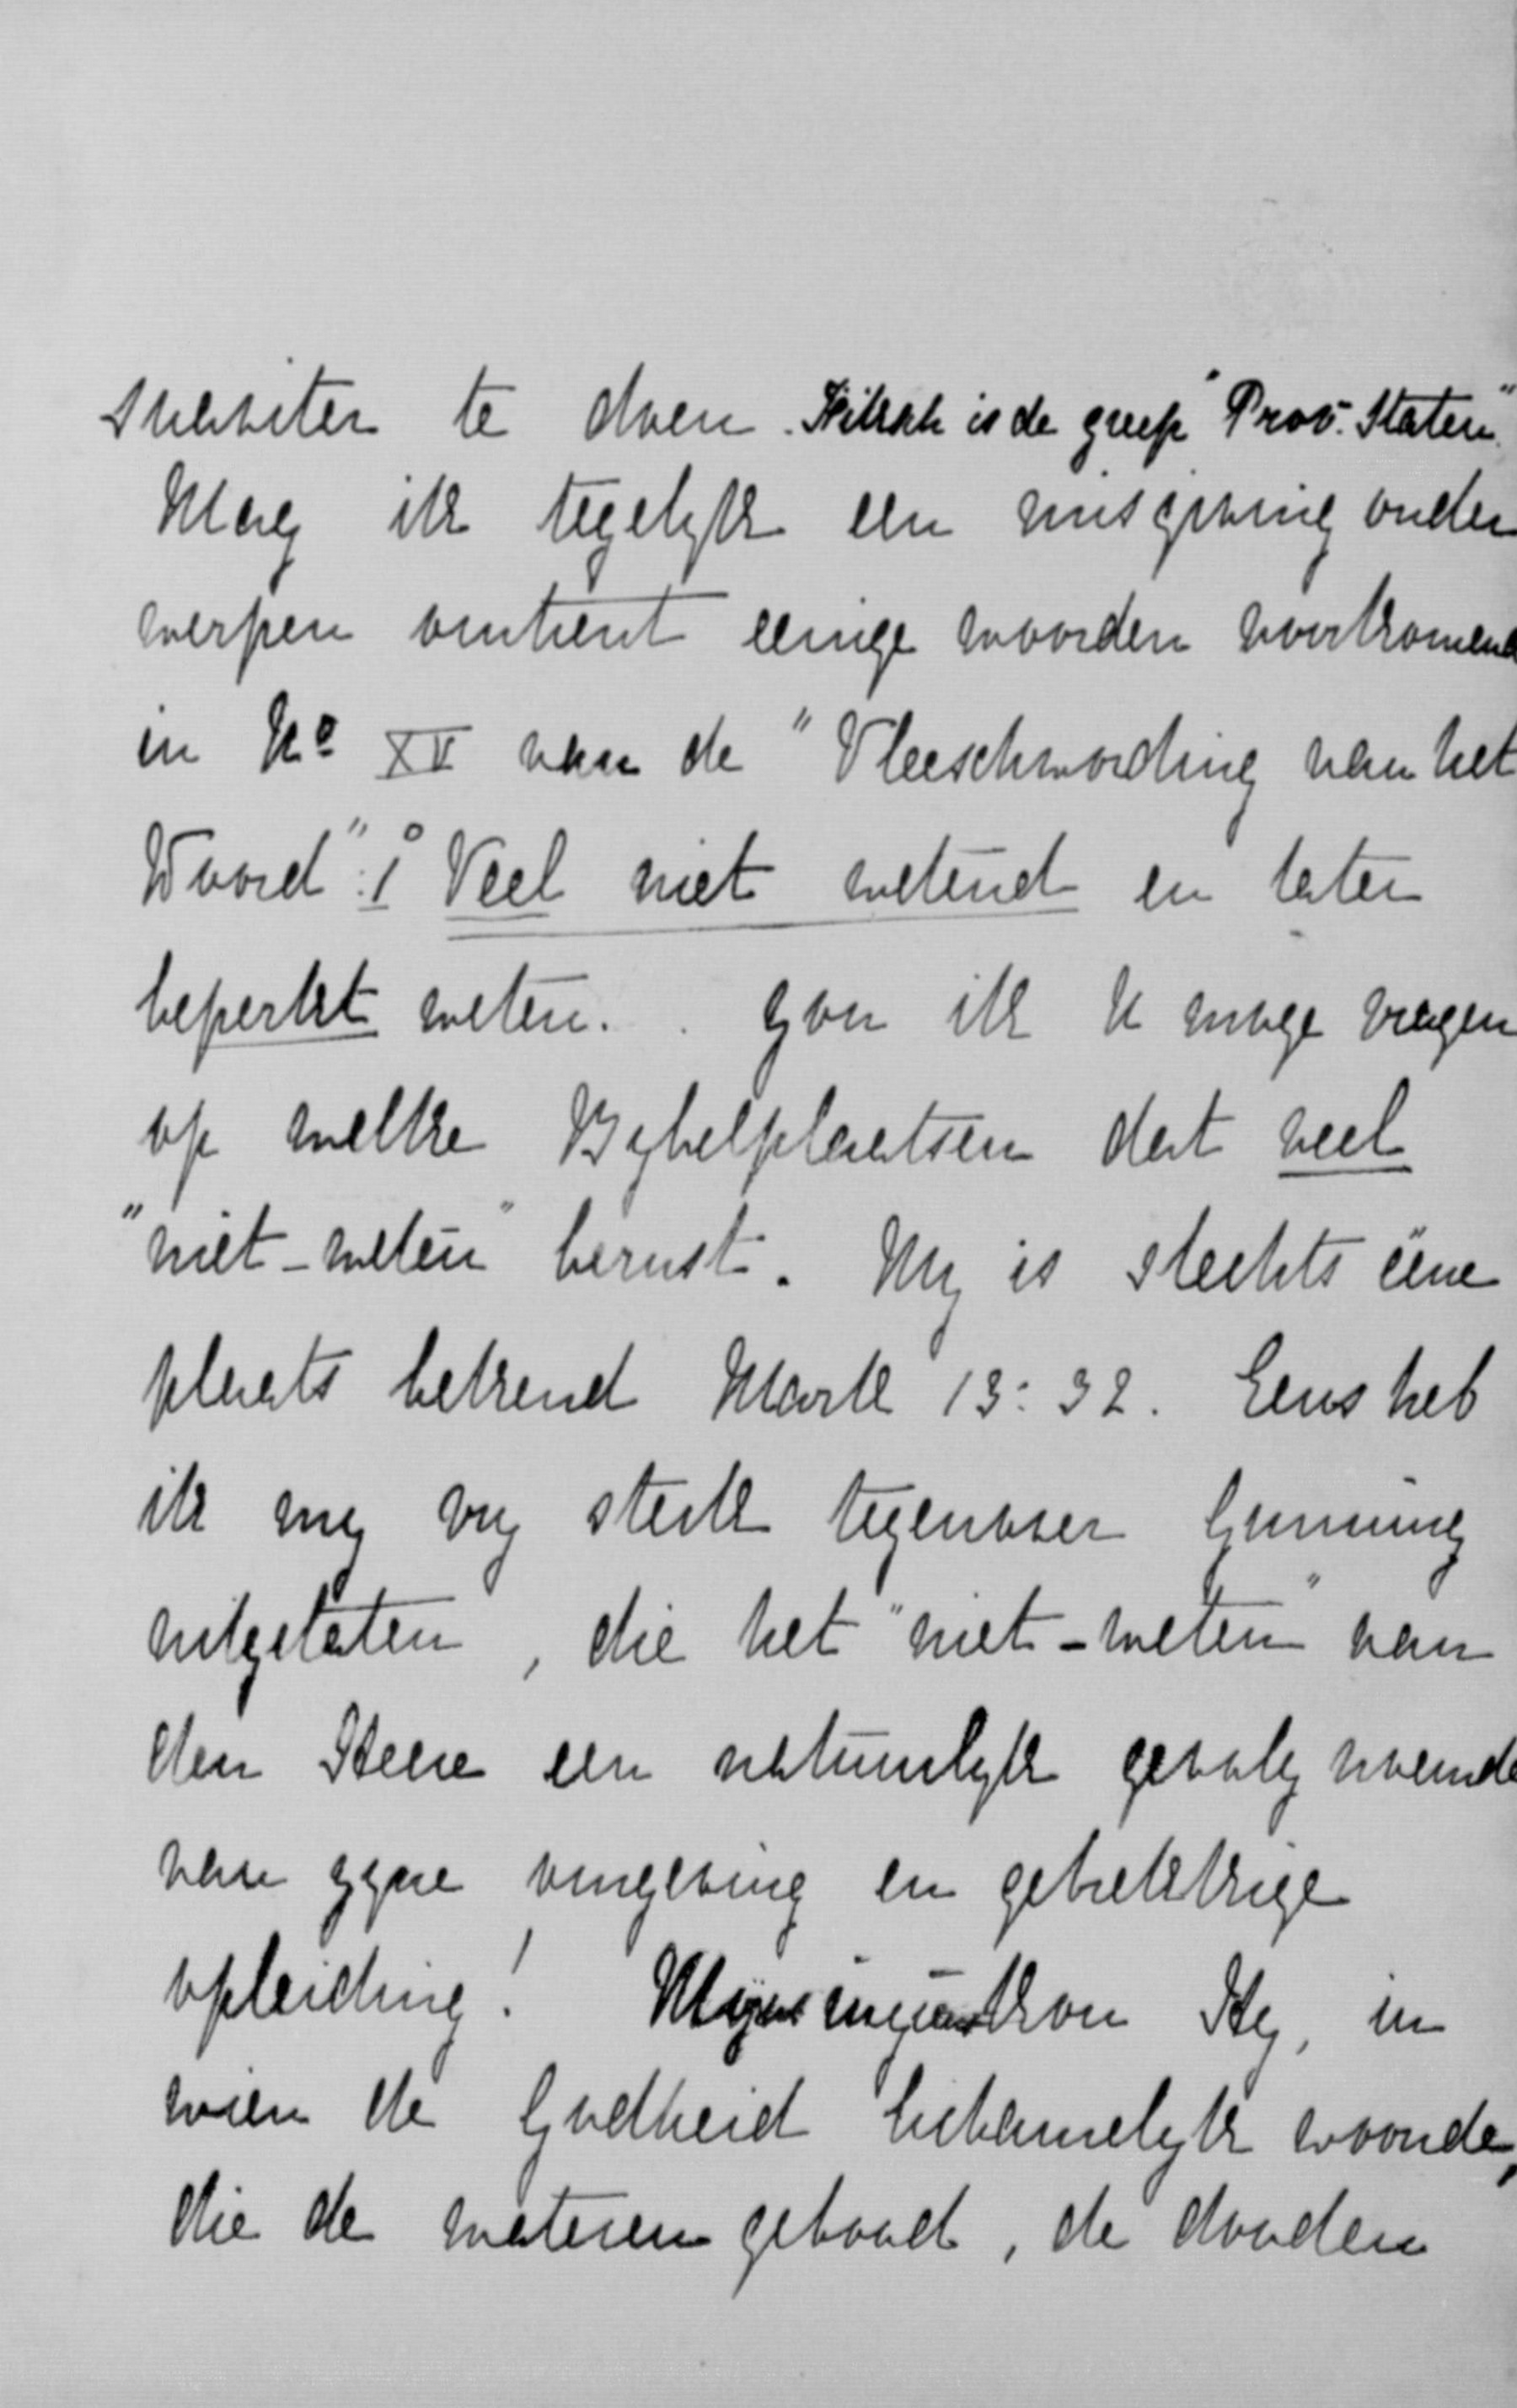 te doen. is de greep "Prov. Staten"
Mag ik tegelyk een misgiving onder
werpen omtrent eenige woorden voorkomend
in No XV van de "Vleeschwording van het
Woord": 1o Veel niet wetend en later
beperkt weten. . Zou ik U moge vragen
op welke Bybelplaatsen dat veel
"niet-weten" berust. My is slechts ééne
plaats bekend Mark 13:32. Eens heb
ik my vry sterk tegenover Gunning
uitgelaten, die het "niet-weten" van
den Heere een natuurlyk gevolg noemde
van zyne omgeving en gebrekkige
opleiding! kon Hy, in
wien de Godheid lichamelyk woonde,
die de wateren gebood, de dooden